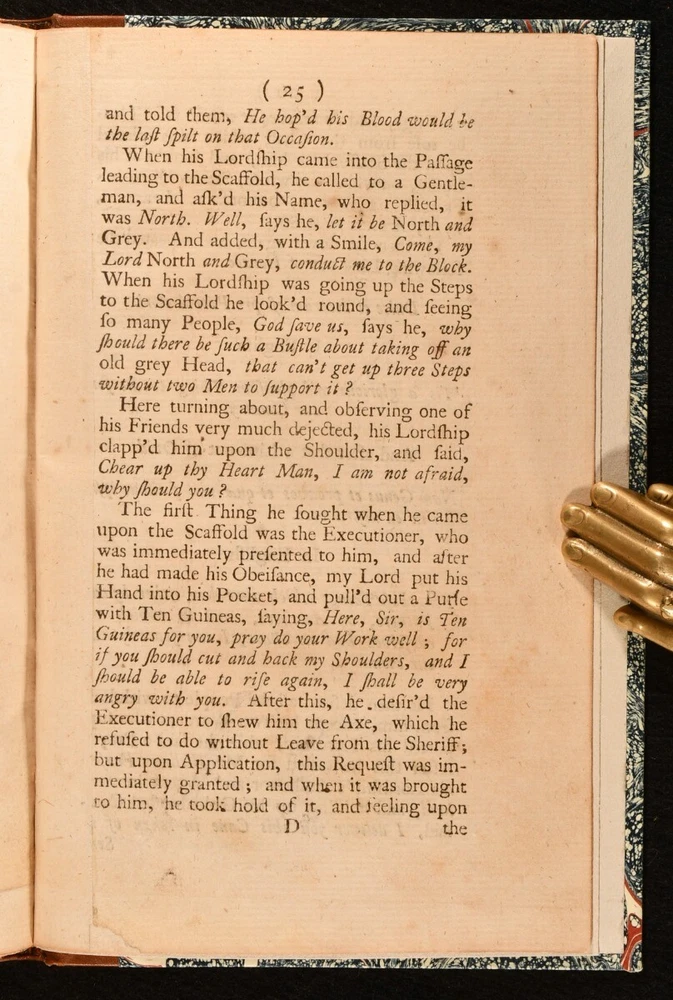 ( 25 )
and told them, He hop'd his Blood would be
the laſt ſpilt on that Occaſion.
When his Lordſhip came into the Paſſage
leading to the Scaffold, he called to a Gentle-
man, and aſk'd his Name, who replied, it
was North. Well, ſays he, let it be North and
Grey. And added, with a Smile, Come, my
Lord North and Grey, conduct me to the Block.
When his Lordſhip was going up the Steps
to the Scaffold he look'd round, and ſeeing
ſo many People, God ſave us, ſays he, why
ſhould there be ſuch a Buſtle about taking off an
old grey Head, that can't get up three Steps
without two Men to ſupport it ?
Here turning about, and obſerving one of
his Friends very much dejected, his Lordſhip
clapp'd him upon the Shoulder, and ſaid,
Chear up thy Heart Man, I am not afraid,
why ſhould you ?
The firſt Thing he ſought when he came
upon the Scaffold was the Executioner, who
was immediately preſented to him, and after
he had made his Obeiſance, my Lord put his
Hand into his Pocket, and pull'd out a Purſe
with Ten Guineas, ſaying, Here, Sir, is Ten
Guineas for you, pray do your Work well ; for
if you ſhould cut and hack my Shoulders, and I
ſhould be able to riſe again, I ſhall be very
angry with you. After this, he deſir'd the
Executioner to ſhew him the Axe, which he
refuſed to do without Leave from the Sheriff;
but upon Application, this Requeſt was im-
mediately granted ; and when it was brought
to him, he took hold of it, and feeling upon
D the